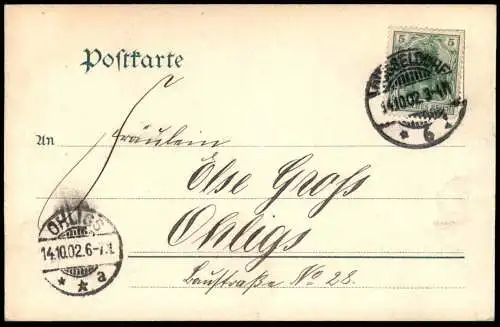 Postkarte
5 5
DÜSSELDORF
14.10.02.3-4N
* 6 a
An
Fräulein
Else Gross
Ohligs
Baustraße No 28.
OHLIGS
14.10.02.6-7N
* * a